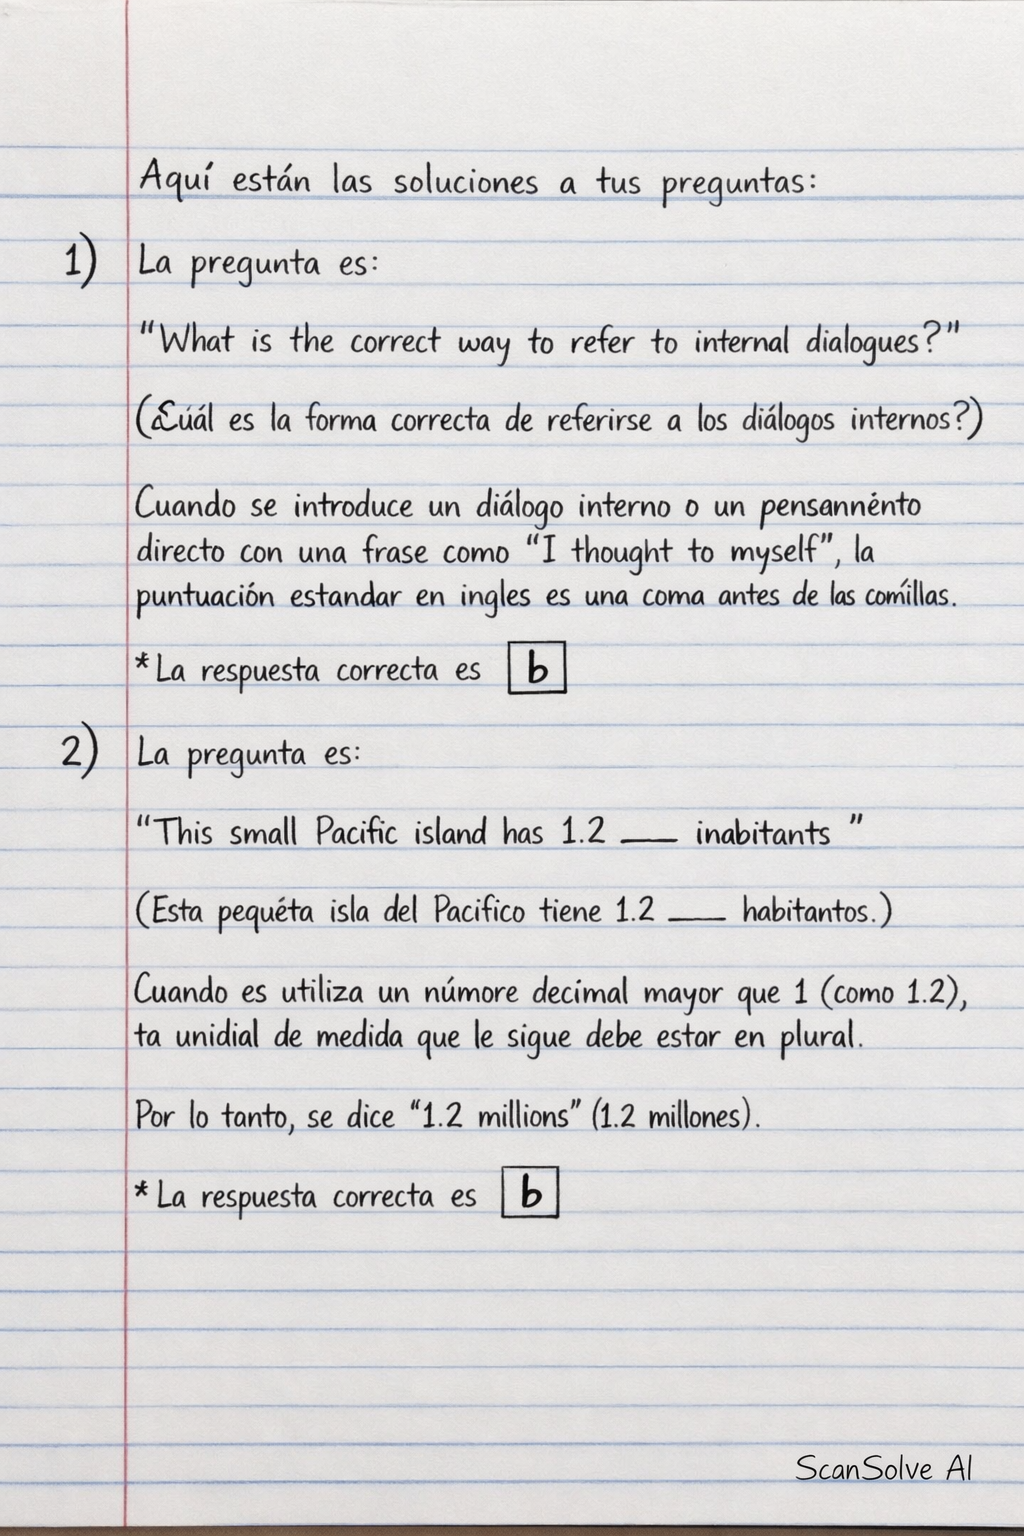 Aquí están las soluciones a tus preguntas:
1) La pregunta es:
"What is the correct way to refer to internal dialogues?"
(¿Cúál es la forma correcta de referirse a los diálogos internos?)
Cuando se introduce un diálogo interno o un pensannénto
directo con una frase como "I thought to myself", la
puntuación estandar en ingles es una coma antes de las comíllas.
*La respuesta correcta es b
2) La pregunta es:
"This small Pacific island has 1.2 ___ inabitants "
(Esta pequéta isla del Pacifico tiene 1.2 ___ habitantos.)
Cuando es utiliza un númore decimal mayor que 1 (como 1.2),
ta unidial de medida que le sigue debe estar en plural.
Por lo tanto, se dice "1.2 millions" (1.2 millones).
* La respuesta correcta es b
ScanSolve AI